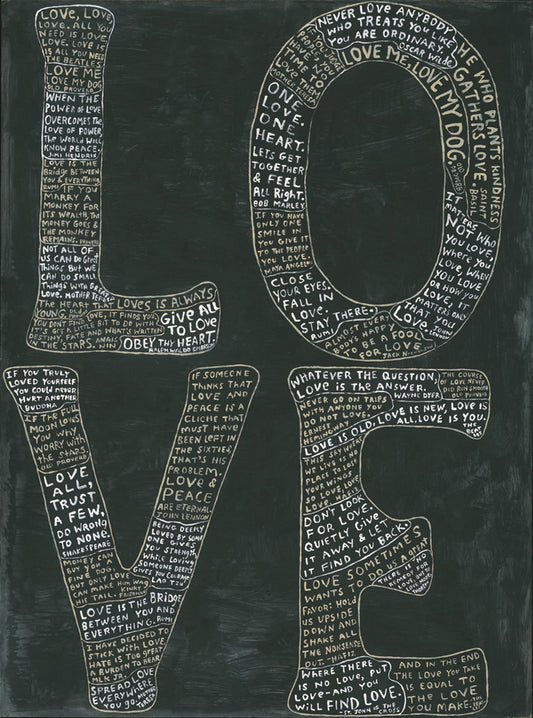 LOVE, LOVE,
LOVE. ALL YOU
NEED IS LOVE.
LOVE. LOVE IS
ALL YOU NEED
THE BEATLES
LOVE ME
LOVE MY DOG
OLD PROVERB
WHEN THE
POWER OF LOVE
OVERCOMES THE
LOVE OF POWER,
THE WORLD WILL
KNOW PEACE.
JIMI HENDRIX
LOVE IS THE
BRIDGE BETWEEN
YOU & EVERYTHING
RUMI
IF YOU
MARRY A
MONKEY FOR
ITS WEALTH, THE
MONEY GOES &
THE MONKEY
REMAINS. PROVERB
NOT ALL OF
US CAN DO GREAT
THINGS BUT WE
CAN DO SMALL
THINGS WITH GREAT
LOVE. MOTHER TERESA
THE HEART THAT LOVES IS ALWAYS
YOUNG.
YOU DON'T FIND LOVE, IT FINDS YOU.
IT'S GOT A LITTLE BIT TO DO WITH
DESTINY, FATE AND WHAT'S WRITTEN
IN THE STARS. ANAIS NIN
GIVE ALL
TO LOVE
OBEY THY HEART.
RALPH WALDO EMERSON
NEVER LOVE ANYBODY
WHO TREATS YOU LIKE
YOU ARE ORDINARY.
OSCAR WILDE
HE WHO PLANTS KINDNESS
GATHERS LOVE. SAINT BASIL
LOVE ME, LOVE MY DOG.
OLD PROVERB
IF YOU
JUDGE
PEOPLE
YOU HAVE
TIME NO
LOVE THEM
MOTHER TERESA
ONE
LOVE.
ONE
HEART.
LETS GET
TOGETHER
& FEEL
ALL RIGHT.
BOB MARLEY
IF YOU HAVE
ONLY ONE
SMILE IN
YOU GIVE IT
TO THE PEOPLE
YOU LOVE.
MAYA ANGELOU
CLOSE
YOUR EYES.
FALL IN
LOVE.
STAY THERE.
RUMI
ALMOST EVERY
GUY'S HAPPY
TO BE A FOOL
FOR LOVE.
JACK N
IT
MATTERS NOT
WHO
YOU LOVE,
WHERE YOU
LOVE, WHEN
YOU LOVE
OR HOW YOU
LOVE, IT
MATTERS ONLY
THAT YOU
LOVE.
JOHN LENNON
IF YOU TRULY
LOVED YOURSELF
YOU COULD NEVER
HURT ANOTHER
BUDDHA
IF THE FULL
MOON LOVES
YOU WHY
WORRY WITH
THE STARS.
OLD PROVERB
LOVE
ALL,
TRUST
A FEW,
DO WRONG
TO NONE.
SHAKESPEARE
MONEY CAN
BUY YOU A
FINE DOG,
BUT ONLY LOVE
CAN MAKE HIM WAG
HIS TAIL. KINKY FRIEDMAN
LOVE IS THE BRIDGE
BETWEEN YOU AND
EVERYTHING. RUMI
I HAVE DECIDED TO
STICK WITH LOVE
HATE IS TOO GREAT
A BURDEN TO BEAR
MLK JR.
SPREAD LOVE
EVERYWHERE
YOU GO. MOTHER TERESA
IF SOMEONE
THINKS THAT
LOVE AND
PEACE IS A
CLICHE THAT
MUST HAVE
BEEN LEFT IN
THE SIXTIES
THAT'S HIS
PROBLEM.
LOVE &
PEACE
ARE ETERNAL
JOHN LENNON
BEING DEEPLY
LOVED BY SOME
ONE GIVES
YOU STRENGTH
WHILE LOVING
SOMEONE DEEPLY
GIVES YOU COURAGE
LAO TZU
WHATEVER THE QUESTION,
LOVE IS THE ANSWER.
WAYNE DYER
THE COURSE
OF LOVE NEVER
DID RUN SMOOTH
OLD PROVERB
NEVER GO ON TRIPS
WITH ANYONE YOU
DO NOT LOVE.
ERNEST
HEMINGWAY
LOVE IS OLD, LOVE IS NEW, LOVE IS
ALL, LOVE IS YOU.
THE BEATLES
DON'T LOOK
FOR LOVE.
QUIETLY GIVE
IT AWAY & LET
IT FIND YOU BACK.
LOVE SOMETIMES
WANTS TO DO US A GREAT
FAVOR: HOLD
US UPSIDE
DOWN AND
SHAKE ALL
THE NONSENSE
OUT. HAFIZ
THERE IS NO
REMEDY FOR
LOVE BUT TO
LOVE MORE
WHERE THERE
IS NO LOVE, PUT
LOVE-AND YOU
WILL FIND LOVE.
ST. JOHN OF THE CROSS
AND IN THE END
THE LOVE YOU TAKE
IS EQUAL TO
THE LOVE
YOU MAKE.